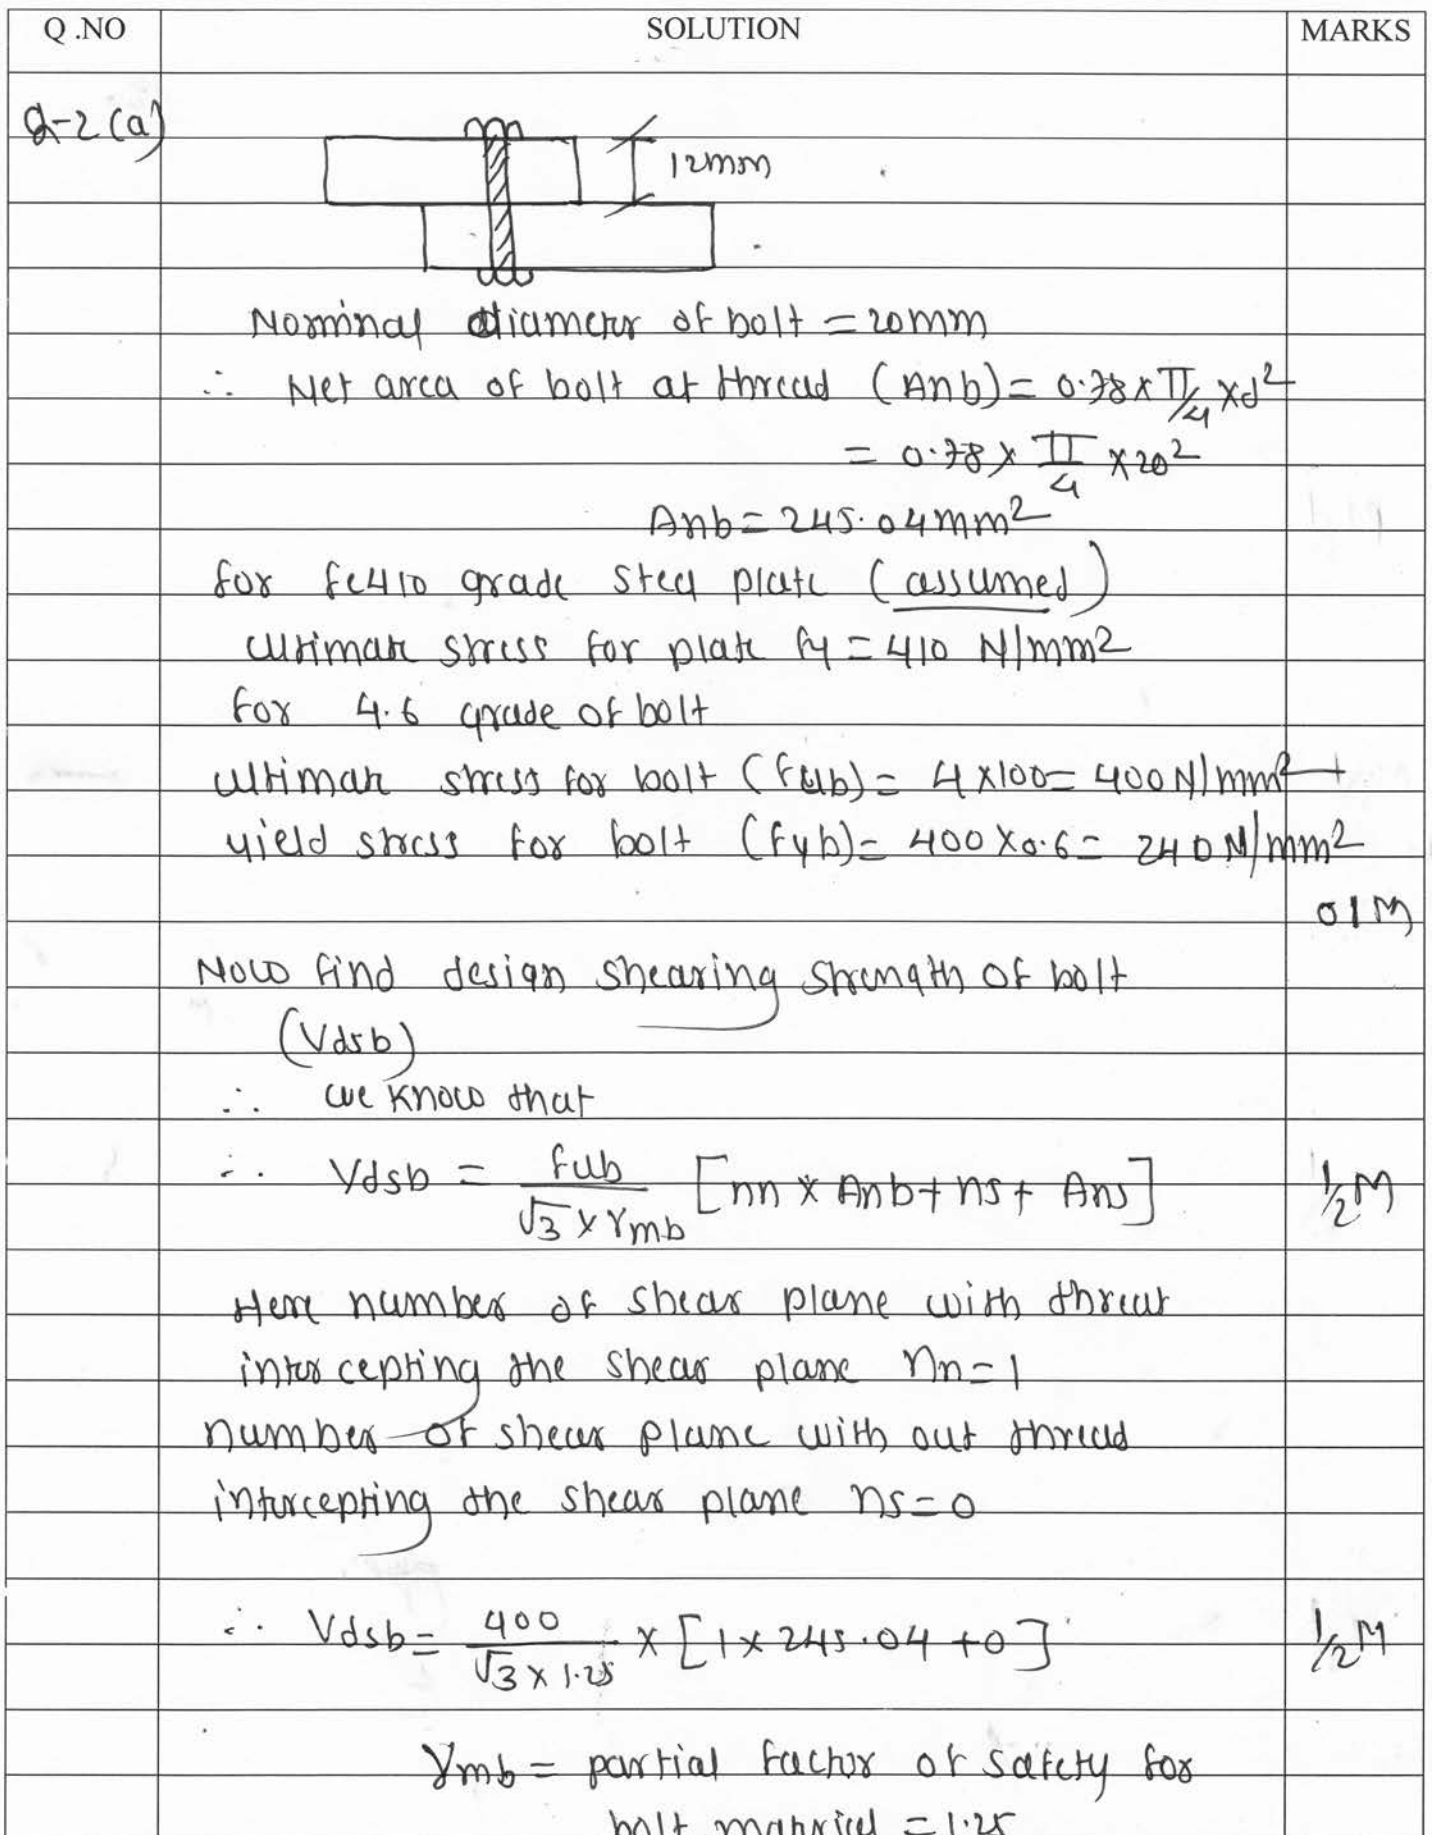 Q .NO SOLUTION MARKS
Q-2 (a)
12mm
Nominal diameter of bolt = 20mm
∴ Net area of bolt at thread (Anb) = 0.78 x π/4 x d²
= 0.78 x π/4 x 20²
Anb = 245.04 mm²
for fe410 grade steel plate (assumed)
Ultimate stress for plate fy = 410 N/mm2
for 4.6 grade of bolt
Ultimate stress for bolt (fub) = 4 x 100 = 400 N/mm²
yield stress for bolt (fyb) = 400 x 0.6 = 240 N/mm²
01M
Now find design shearing strength of bolt
(Vdsb)
∴ we know that
∴ Vdsb = fub / √3 x γmb [nn x Anb + ns + Ans] ½M
Here number of shear plane with thread
intercepting the shear plane nn = 1
number of shear plane with out thread
intercepting the shear plane ns = 0
∴ Vdsb = 400 / √3 x 1.25 x [1 x 245.04 + 0] ½M
γmb = partial factor of safety for
bolt material = 1.25